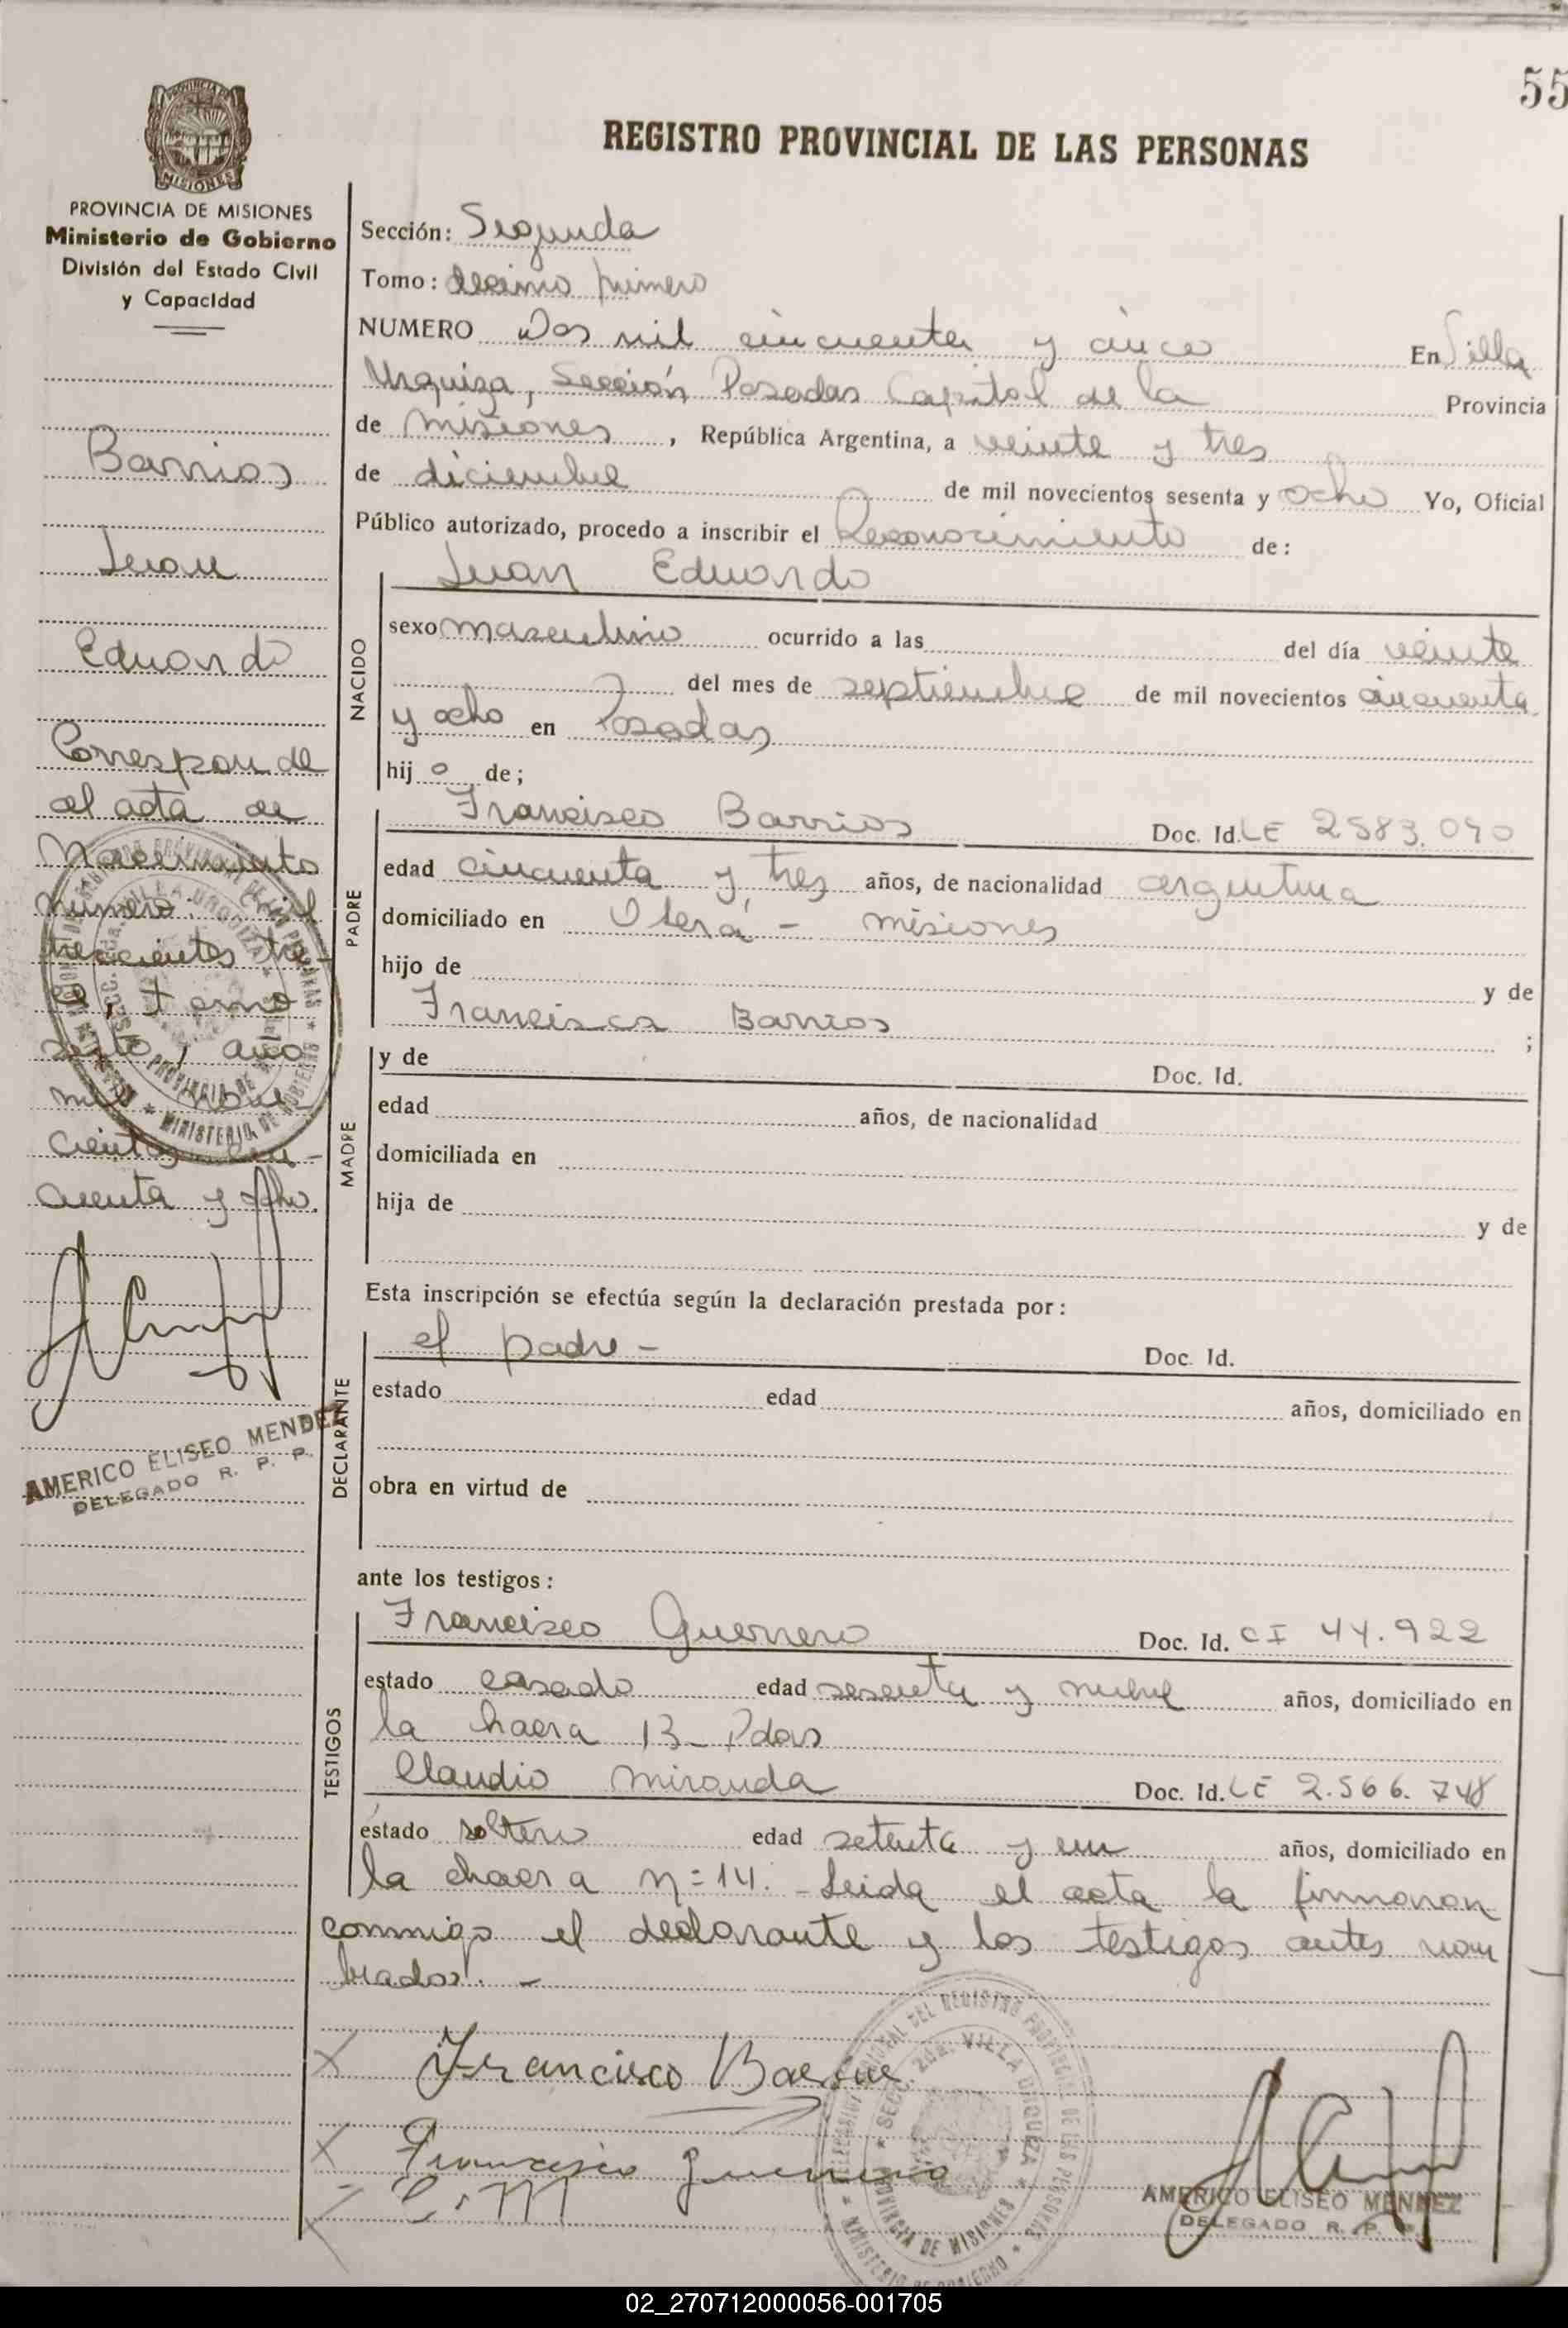 55
REGISTRO PROVINCIAL DE LAS PERSONAS
MISIONES
PROVINCIA DE MISIONES
Ministerio de Gobierno
División del Estado Civil
y Capacidad
Barrios
Juan
Eduardo
Corresponde
al acta de
Nacimiento
número mil
trescientos tre-
ce, tomo
sexto, año
mil nove
cientos cin-
cuenta y ocho.
AMERICO ELISEO MENDEZ
DELEGADO R. P. P.
Sección: Segunda
Tomo: décimo primero
NUMERO Dos mil cincuenta y cinco En Villa
Urquiza, Sección Posadas Capital de la Provincia
de Misiones, República Argentina, a veinte y tres
de diciembre de mil novecientos sesenta y ocho Yo, Oficial
Público autorizado, procedo a inscribir el Reconocimiento de:
NACIDO
Juan Eduardo
sexo masculino ocurrido a las del día veinte
del mes de septiembre de mil novecientos cincuenta
y ocho en Posadas
hij o de;
PADRE
Francisco Barrios Doc. Id. LE 2583.090
edad cincuenta y tres años, de nacionalidad argentina
domiciliado en Oberá - misiones
hijo de y de
Francisca Barrios ;
MADRE
y de Doc. Id.
edad años, de nacionalidad
domiciliada en
hija de y de
Esta inscripción se efectúa según la declaración prestada por:
DECLARANTE
el padre - Doc. Id.
estado edad años, domiciliado en
obra en virtud de
ante los testigos:
TESTIGOS
Francisco Guerrero Doc. Id. CI 44.922
estado casado edad sesenta y nueve años, domiciliado en
la hacra 13 - Pdas
Claudio Miranda Doc. Id. LE 2.566.748
estado soltero edad setenta y un años, domiciliado en
la chacra n=14. - Leida el acta la firmaron
conmigo el declarante y los testigos antes nom
brados. -
X Francisco Barrios
X Francisco Guerrero
C. M
SECC. 2da. VILLA URQUIZA
PROVINCIA DE MISIONES
AMERICO ELISEO MENDEZ
DELEGADO R. P. P.
02_270712000056-001705